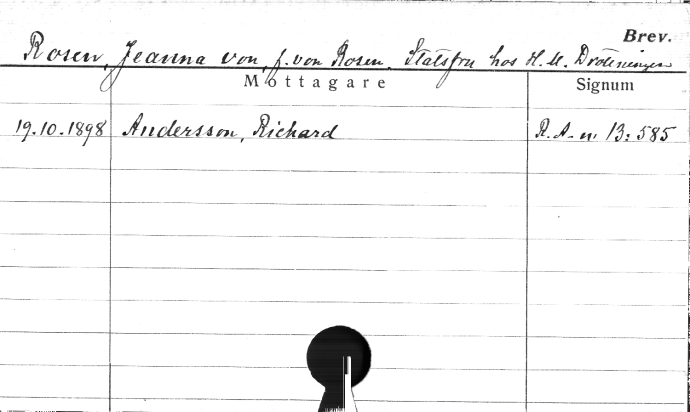 Brev.
Rosen, Jeanna von, f. von Rosen. Statsfru hos H. M. Drottningen
Mottagare Signum
19.10.1898 Andersson, Richard R. A. n. 13:585